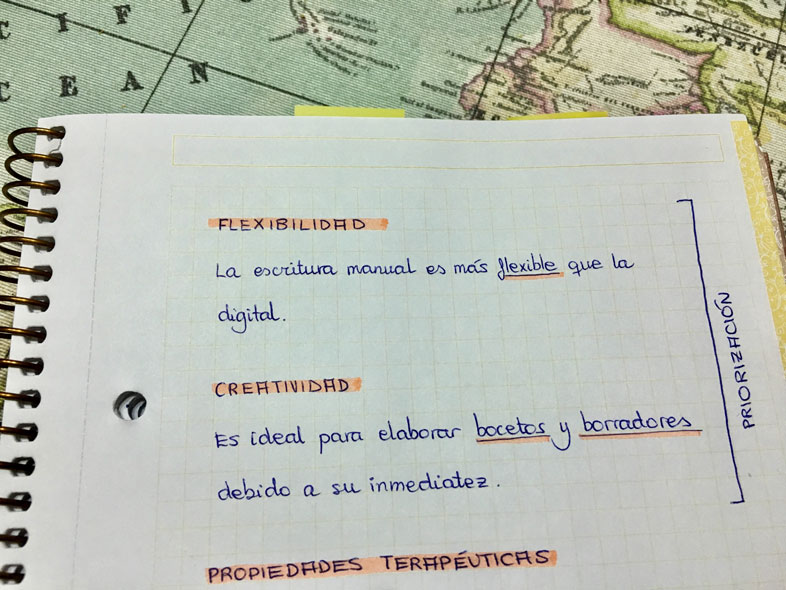 C I F I
C E A N
FLEXIBILIDAD
La escritura manual es más flexible que la
digital.
CREATIVIDAD
Es ideal para elaborar bocetos y borradores
debido a su inmediatez.
PRIORIZACIÓN
PROPIEDADES TERAPÉUTICAS